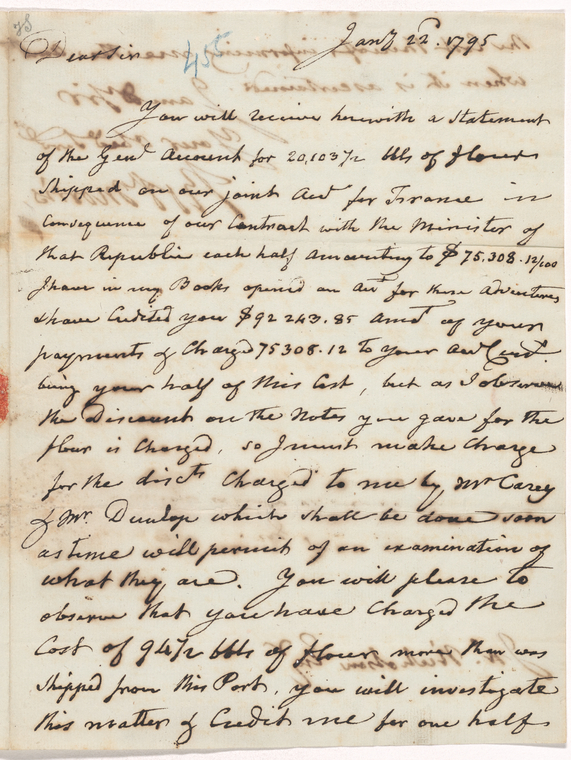 38
455
Jany 22d. 1795
Dear Sir
You will receive herewith a Statement
of the Genl Account for 20,103 1/2 bbls of flour
Shipped on our joint Acct for France in
Consequence of our Contract with the Minister of
that Republic each half amounting to $75,308.12/100
I have in my Books opened an Acct for these Adventures
& have Credited you $92243.85 Amt of your
payments & Charged 75308.12 to your Acct Curt
being your half of this Cost, but as I observe
the Discount on the Notes you gave for the
flour is Charged, so I must make Charge
for the discts Charged to me by Mr Carey
& Mr. Dunlop which shall be done soon
as time will permit of an examination of
what they are. You will please to
observe that you have Charged the
Cost of 94 1/2 bbls of flour more than was
Shipped from this Port, you will investigate
this matter & Credit me for one half